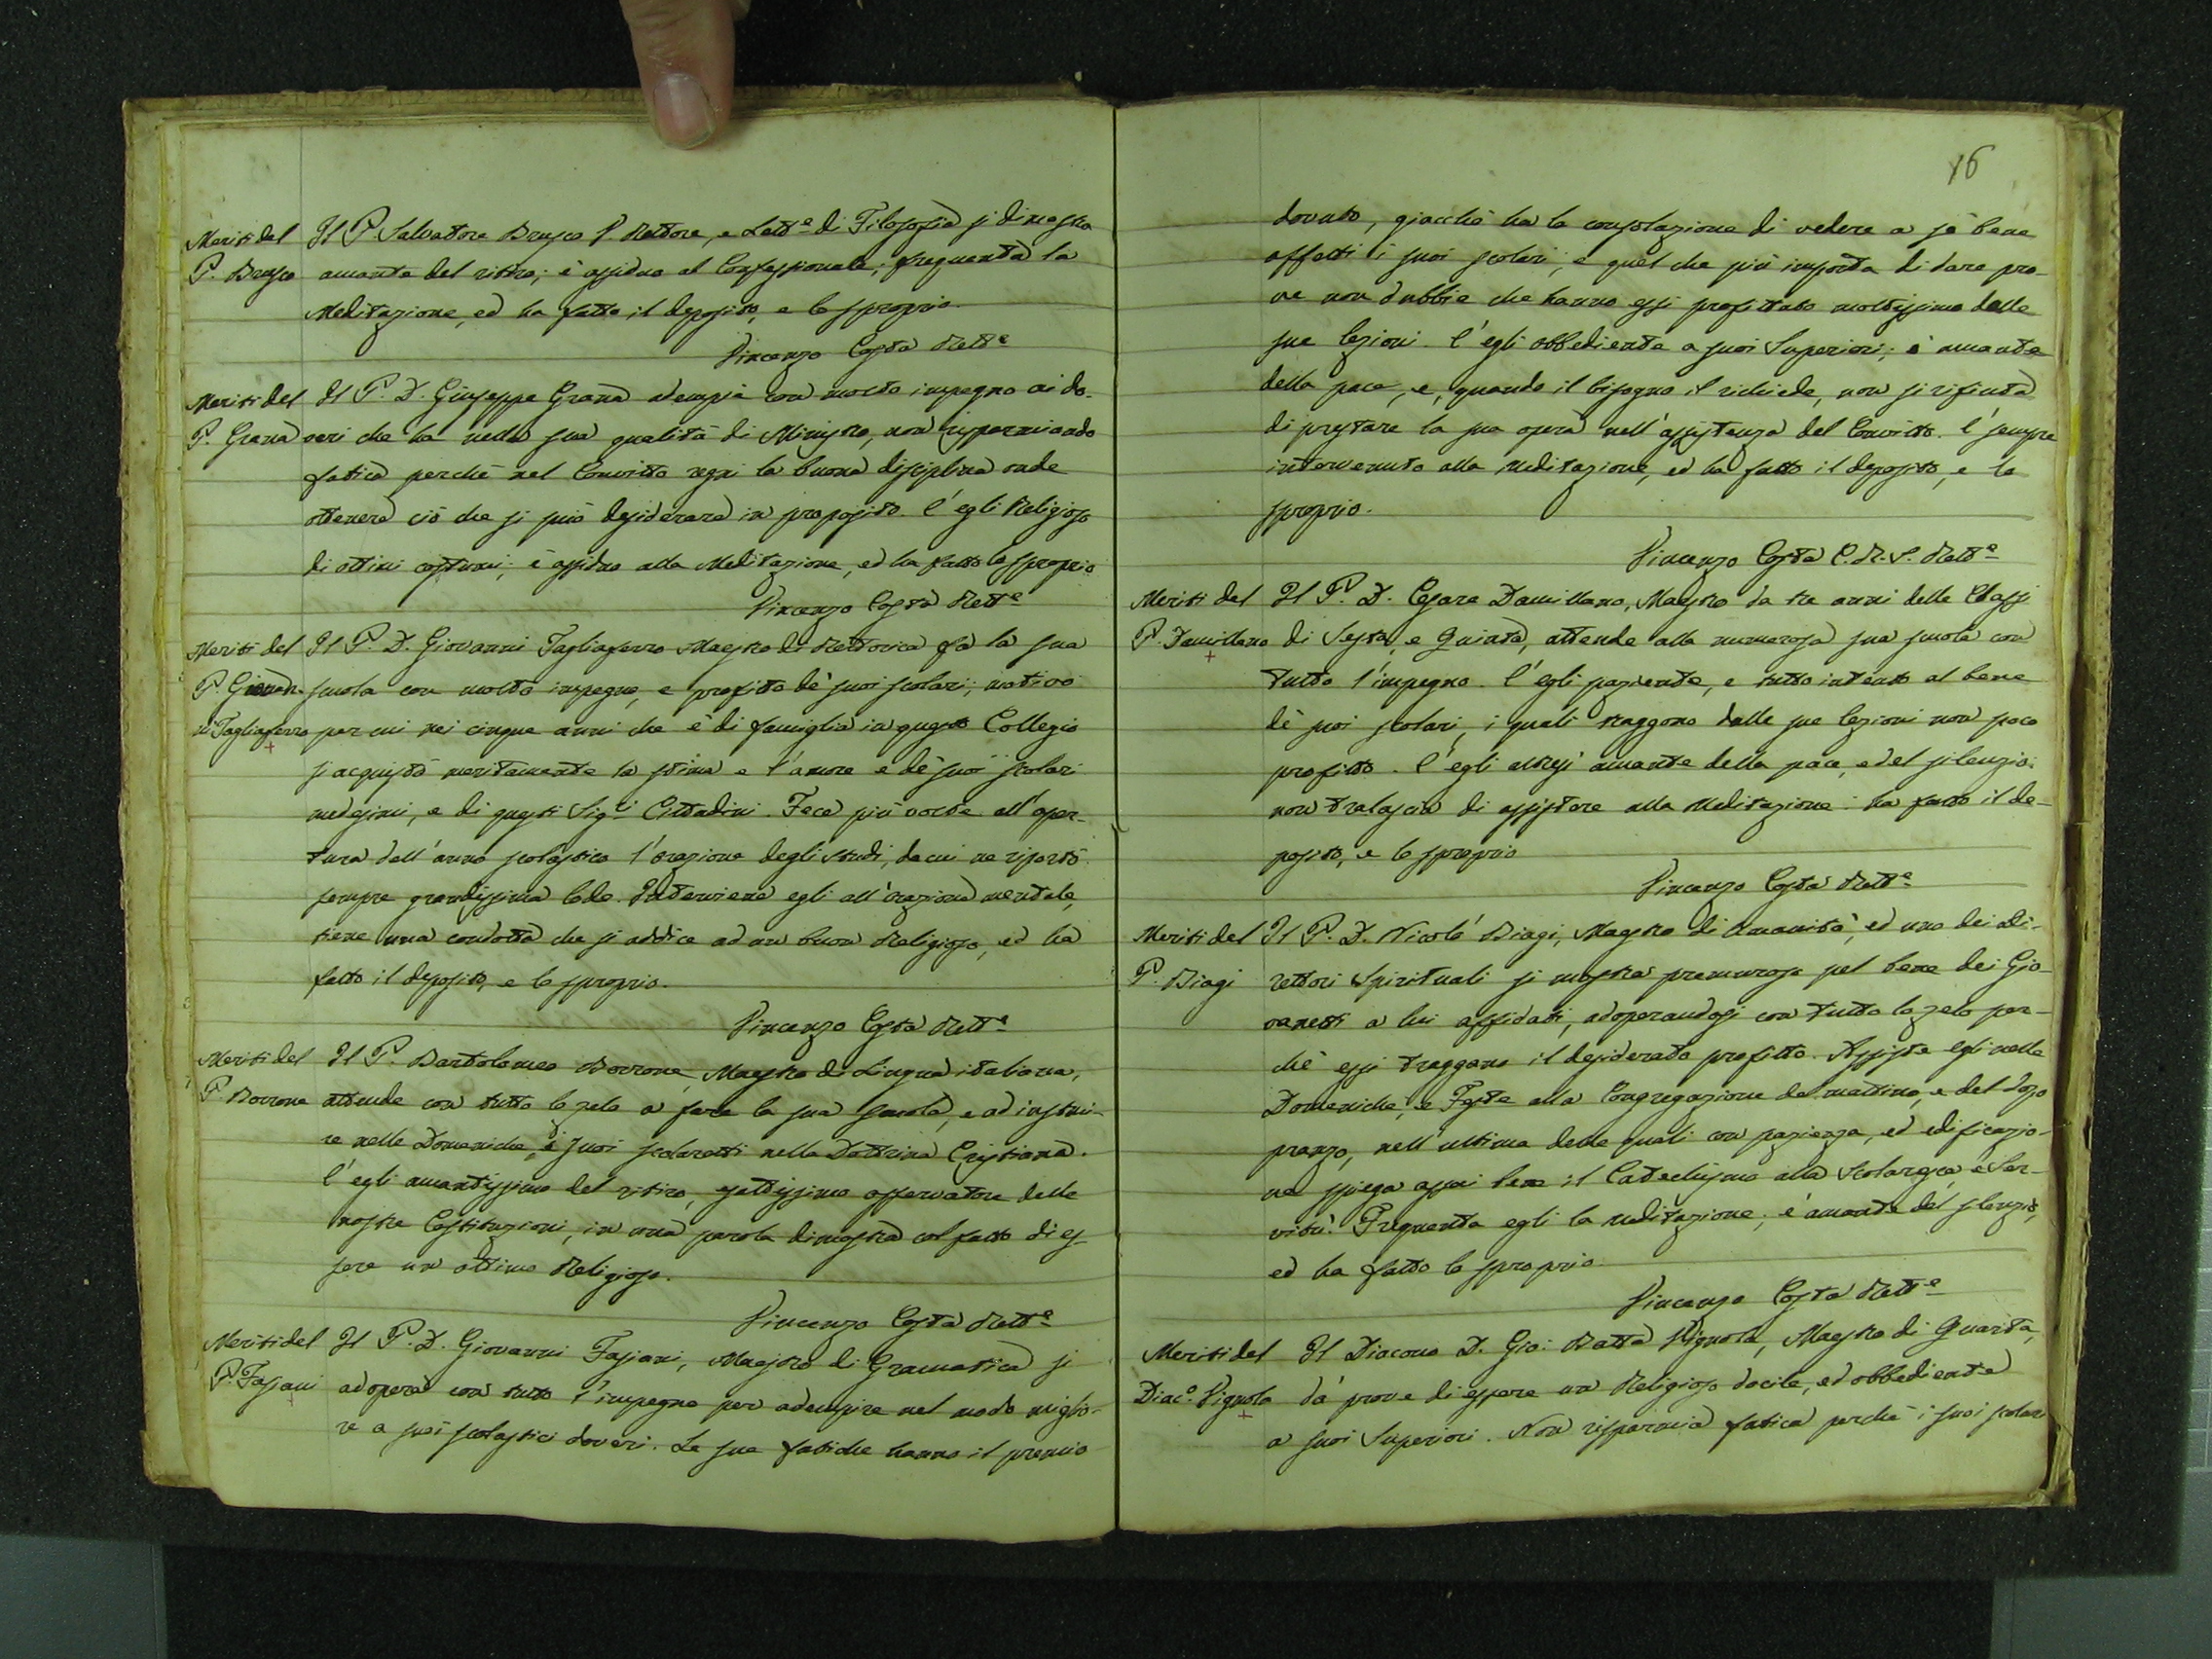 Meriti del Il P. Salvatore Brusco V. Rettore, e Lett.e di Filosofia si dimostra
P. Brusco amante del ritiro; è assiduo al Confessionale; frequenta la
Meditazione, ed ha fatto il deposito, e lo sproprio.
Vincenzo Costa Rett.e
Meriti del Il P. D. Giuseppe Grana adempie con molto impegno ai do-
P. Grana veri che ha nella sua qualità di Ministro, non risparmiando
fatica perchè nel Convitto regni la buona disciplina onde
ottenere ciò che si può desiderare in proposito. È egli Religioso
di ottimi costumi; è assiduo alla Meditazione, ed ha fatto lo sproprio
Vincenzo Costa Rett.e
Meriti del Il P. D. Giovanni Tagliaferro Maestro di Rettorica fa la sua
P. Giovan- scuola con molto impegno, e profitto de' suoi scolari; motivo
ni Tagliaferro per cui nei cinque anni che è di famiglia in questo Collegio
si acquistò meritamente la stima e l'amore e de' suoi scolari
medesimi, e di questi Sig.i Cittadini. Fece più volte all'aper-
tura dell'anno scolastico l'orazione degli studi, da cui ne riportò
sempre grandissima lode. Interviene egli all'orazione mentale,
tiene una condotta che si addice ad un buon Religioso, ed ha
fatto il deposito, e lo sproprio.
Vincenzo Costa Rett.e
Meriti del Il P. Bartolomeo Borrone, Maestro di Lingua italiana,
P. Borrone attende con tutto lo zelo a fare la sua scuola, e ad instrui-
re nelle Domeniche, i suoi scolaretti nella Dottrina Cristiana.
È egli amantissimo del ritiro, esattissimo osservatore delle
nostre Costituzioni, in una parola dimostra col fatto di es-
sere un ottimo Religioso.
Vincenzo Costa Rett.e
Meriti del Il P. D. Giovanni Fasiani, Maestro di Gramatica si
P. Fasiani adopera con tutto l'impegno per adempire nel modo miglio-
re a suoi scolastici doveri. Le sue fatiche hanno il premio
16
dovuto, giacchè ha la consolazione di vedere a sè bene
affetti i suoi scolari; e quel che più importa di dare pro-
ve non dubbie che hanno essi profittato moltissimo dalle
sue lezioni. È egli obbediente a suoi Superiori; è amante
della pace, e, quando il bisogno il richiede, non si rifiuta
di prestare la sua opera nell'assistenza del Convitto. È sempre
intervenuto alla Meditazione, ed ha fatto il deposito, e lo
sproprio.
Vincenzo Costa C. R. S. Rett.e
Meriti del Il P. D. Cesare Damillano, Maestro da tre anni delle Classi
P. Damillano di Sesta, e Quinta, attende alla numerosa sua scuola con
tutto l'impegno. È egli paziente, e tutto intento al bene
de' suoi scolari, i quali traggono dalle sue lezioni non poco
profitto. È egli altresì amante della pace, e del silenzio:
non tralascia di assistere alla Meditazione: ha fatto il de-
posito, e lo sproprio
Vincenzo Costa Rett.e
Meriti del Il P. D. Nicolò Biagi, Maestro di Umanità, ed uno dei Di-
P. Biagi rettori Spirituali si mostra premuroso pel bene dei Gio-
vanetti a lui affidati, adoperandosi con tutto lo zelo per-
chè essi traggano il desiderato profitto. Assiste egli nelle
Domeniche, e Feste alla Congregazione del mattino, e del dopo
pranzo, nell'ultima delle quali con pazienza, ed edificazio-
ne spiega assai bene il Catechismo alla Scolaresca e Ser-
vitù. Frequenta egli la meditazione; è amante del silenzio,
ed ha fatto lo sproprio.
Vincenzo Costa Rett.e
Meriti del Il Diacono D. Gio: Batta Vignola, Maestro di Quarta,
Diac.o Vignola dà prove di essere un Religioso docile, ed obbediente
a suoi Superiori. Non risparmia fatica perchè i suoi scolari